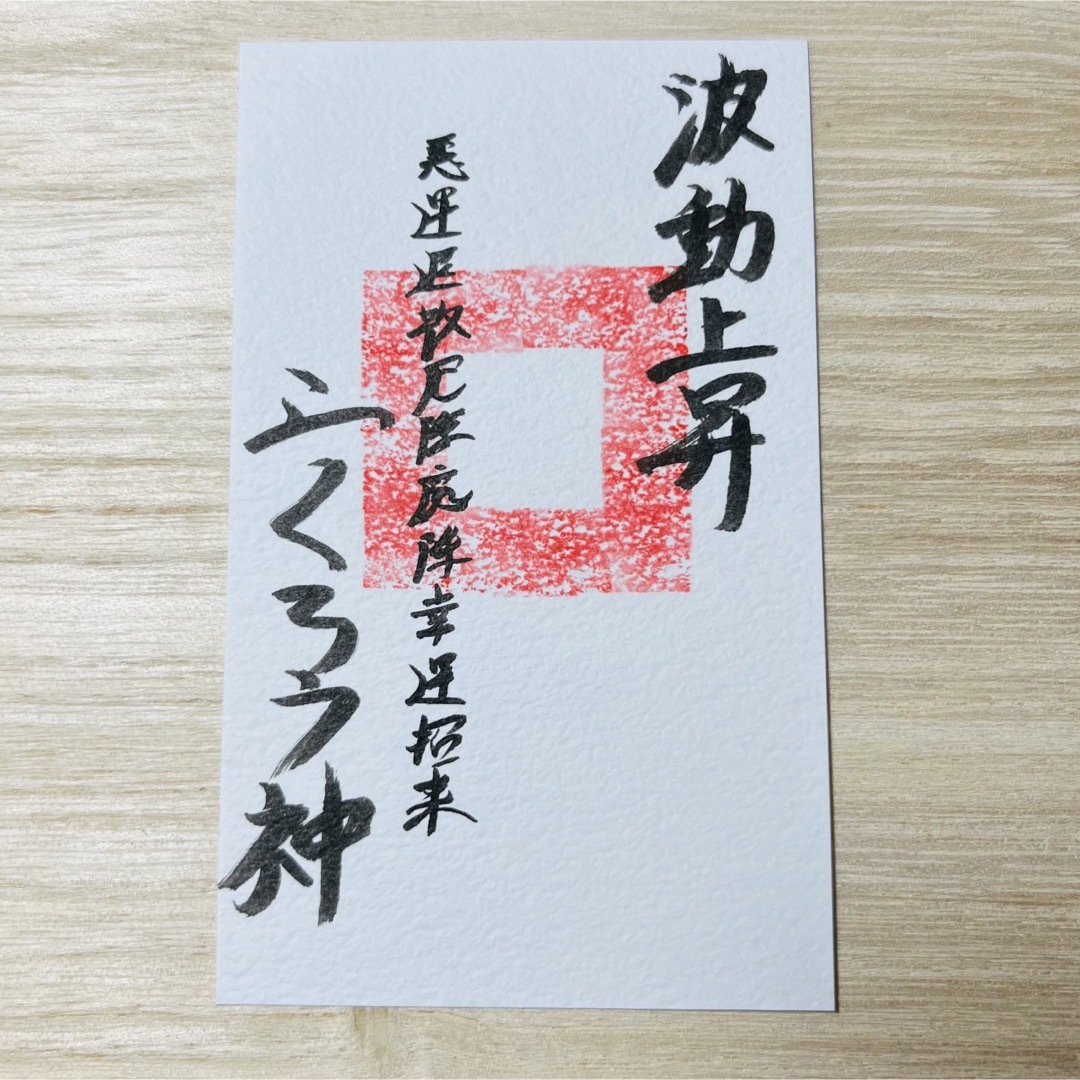 波動上昇
悪運退散厄除厄除幸運招来
ふくろう神